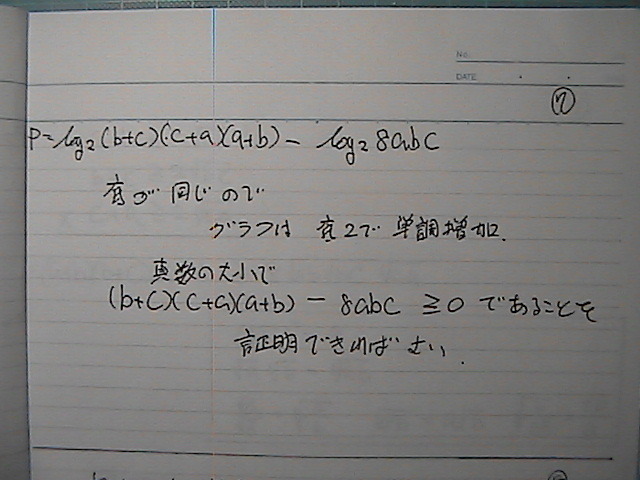 No.
DATE
⑦
P=log₂(b+c)(c+a)(a+b) - log₂8abc
底が同じので
グラフは 底2で 単調増加.
真数の大小で
(b+c)(c+a)(a+b) - 8abc ≧0 であることを
証明できればよい.